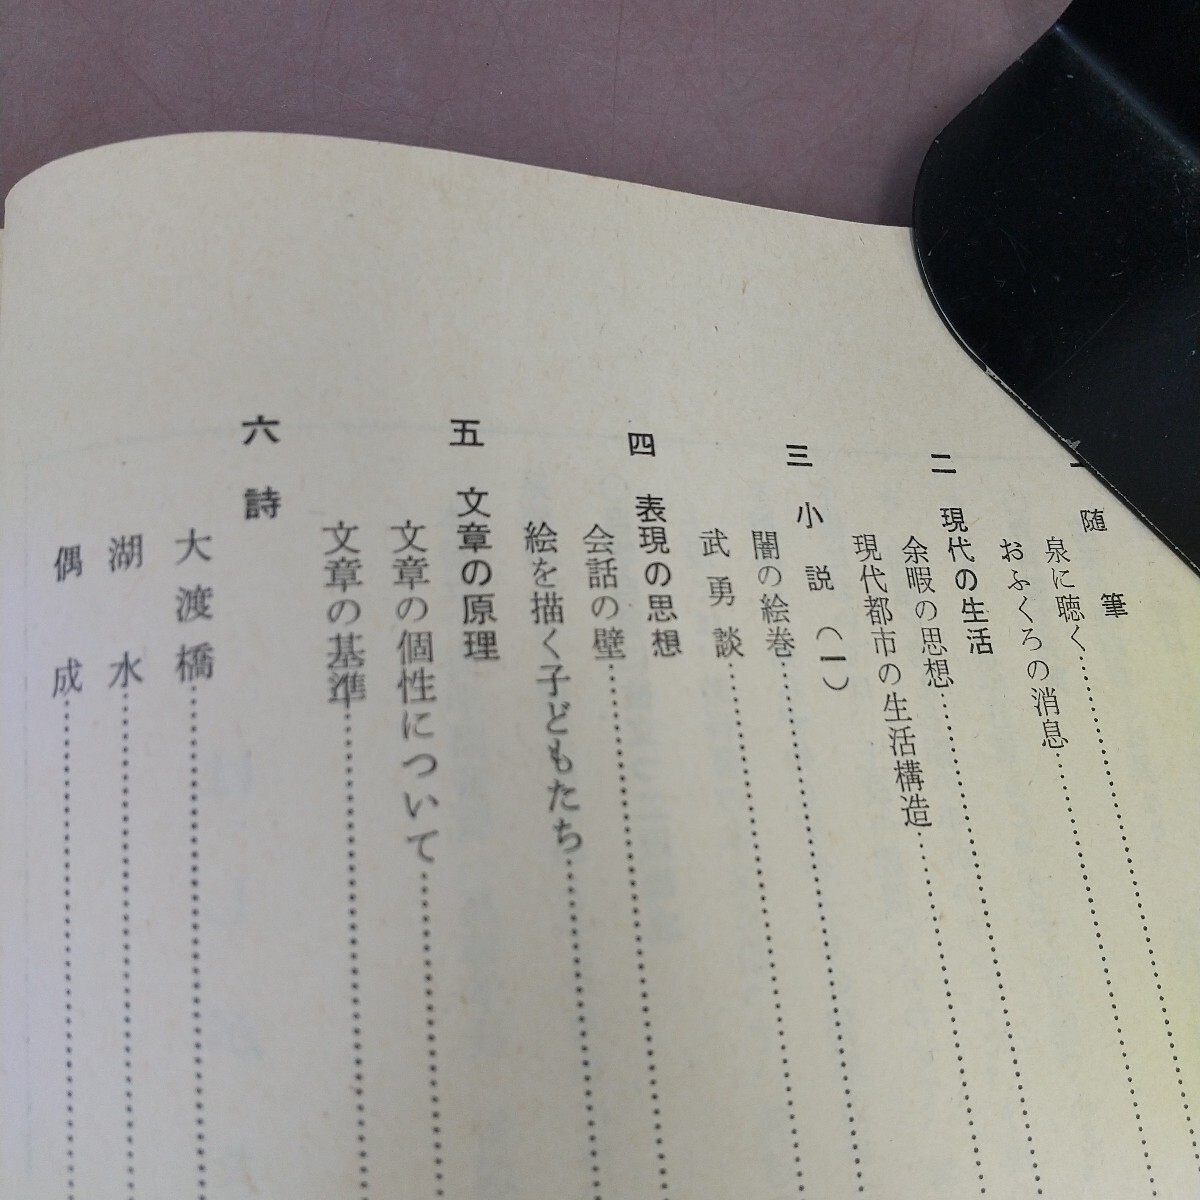 一 随筆
泉に聴く
おふくろの消息
二 現代の生活
余暇の思想
現代都市の生活構造
三 小説(一)
闇の絵巻
武勇談
四 表現の思想
会話の壁
絵を描く子どもたち
五 文章の原理
文章の個性について
文章の基準
六 詩
大渡橋
湖水
偶成